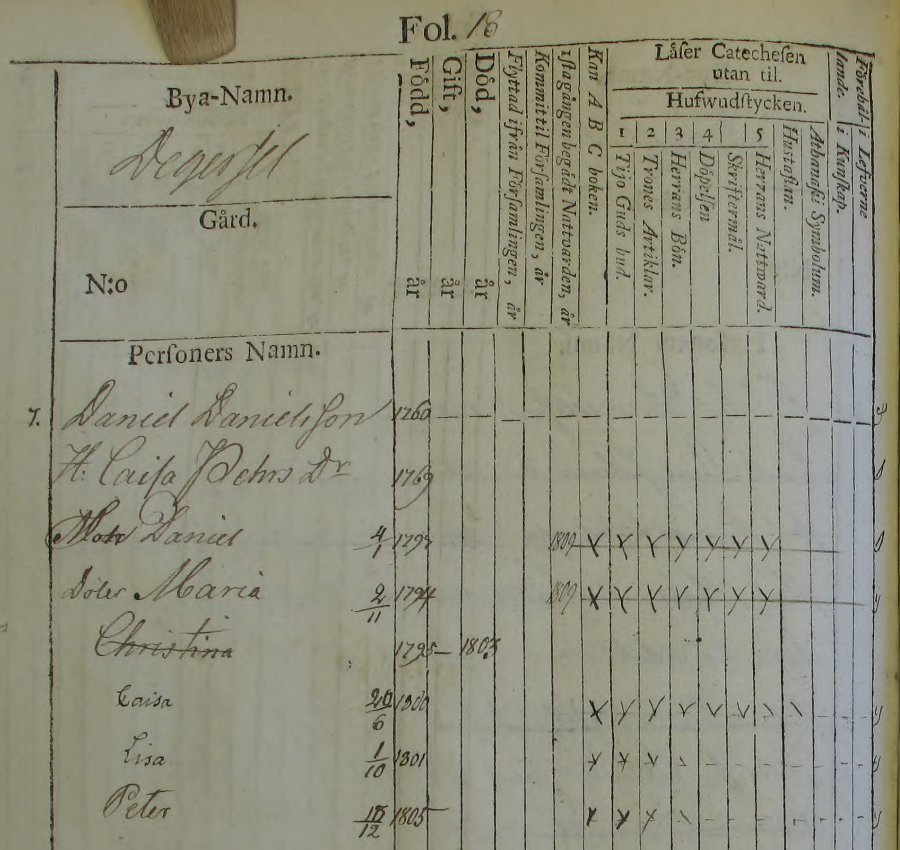 Fol. 18
Bya-Namn.
Degersel
Gård.
N:o
Personers Namn.
Född, år
Gift, år
Död, år
Flyttad ifrån Församlingen, år
Kommit til Församlingen, år
1sta gången begådt Nattvarden, år
Kan A B C boken.
Låser Catechesen
utan til.
Hufwudstycken.
1 2 3 4 5
Tijo Guds bud.
Trones Artiklar.
Herrans Bön.
Döpelsen
Skriftermål.
Herrans Nattward.
Hustaflan.
Athanasii Symbolum.
i Kunskap.
i Lefverne
7. Daniel Danielsson 1760
H. Caisa Pehrs Dr 1769
Daniel 4/1 1797 1809
Maria 2/11 1794 1809
Christina 1795 1803
Caisa 20/6 1800
Lisa 1/10 1801
Peter 18/12 1805